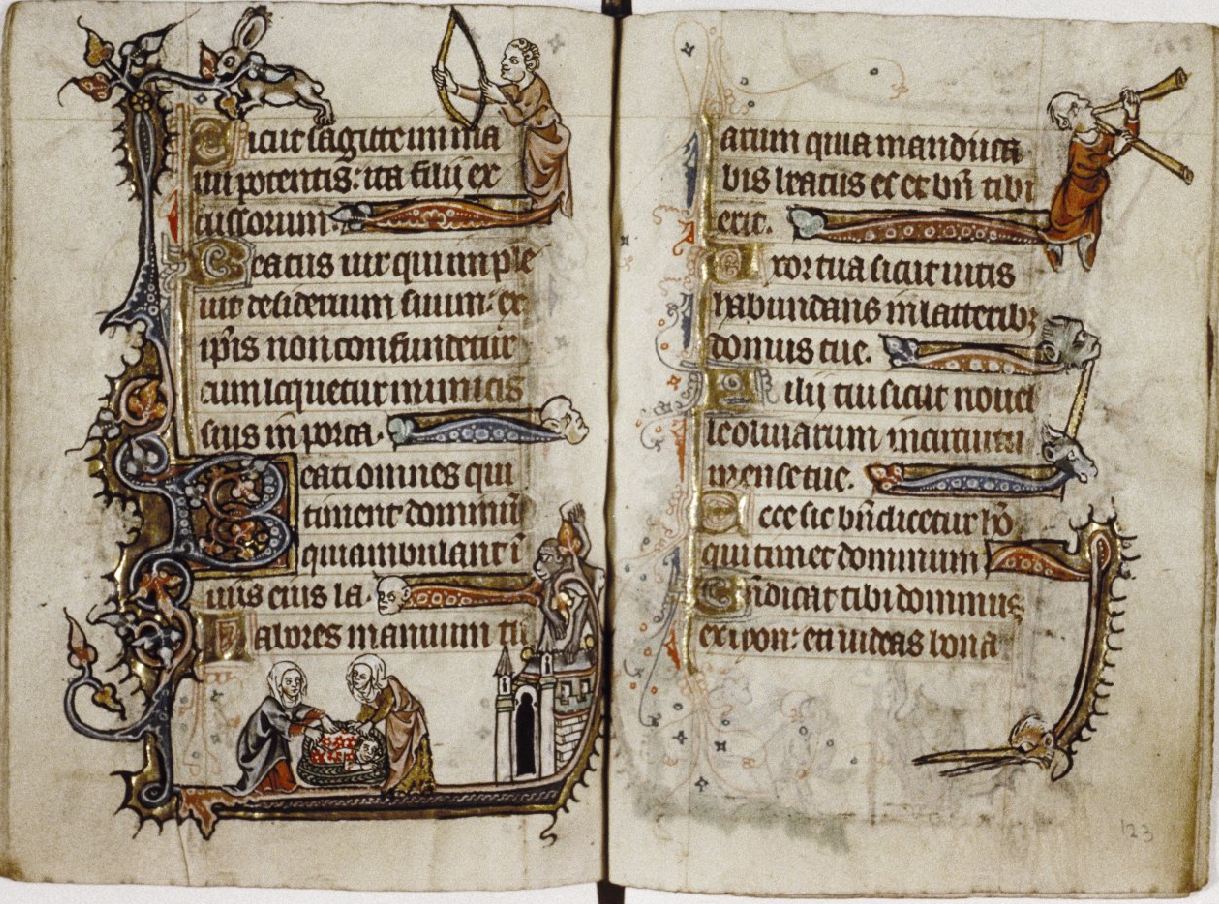 Sicut sagitte in ma
nu potentis: ita filij ex
cussorum.
Beatus uir qui imple
uit desiderium suum: ex
ip̄is non confundetur
cum loquetur inimicis
suis in porta.
Beati omnes qui
timent dominū
qui ambulant ī
uiis eius la.
Labores manuum tu
arum quia manduca
bis beatus es et bn̄ tibi
erit.
Uxor tua sicut uitis
habundans in latterib;
domus tue.
Filij tui sicut nouel
le oliuarum in circuitu
mense tue.
Ecce sic bn̄dicetur hō
qui timet dominum
Bn̄dicat tibi dominus
ex syon: et uideas bona
123